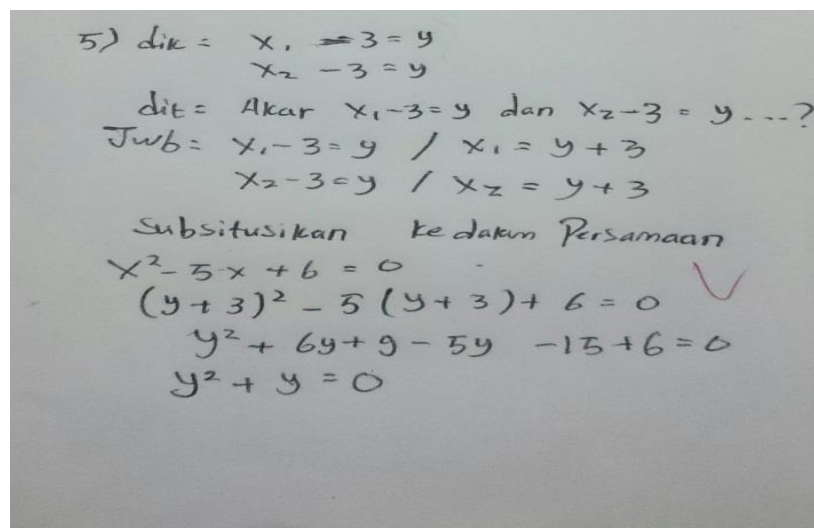 5) dik = x₁ - 3 = y
x₂ - 3 = y
dit = Akar x₁ - 3 = y dan x₂ - 3 = y ....?
Jwb = x₁ - 3 = y / x₁ = y + 3
x₂ - 3 = y / x₂ = y + 3
Subsitusikan ke dalam Persamaan
x² - 5x + 6 = 0
(y + 3)² - 5 (y + 3) + 6 = 0
y² + 6y + 9 - 5y - 15 + 6 = 0
y² + y = 0